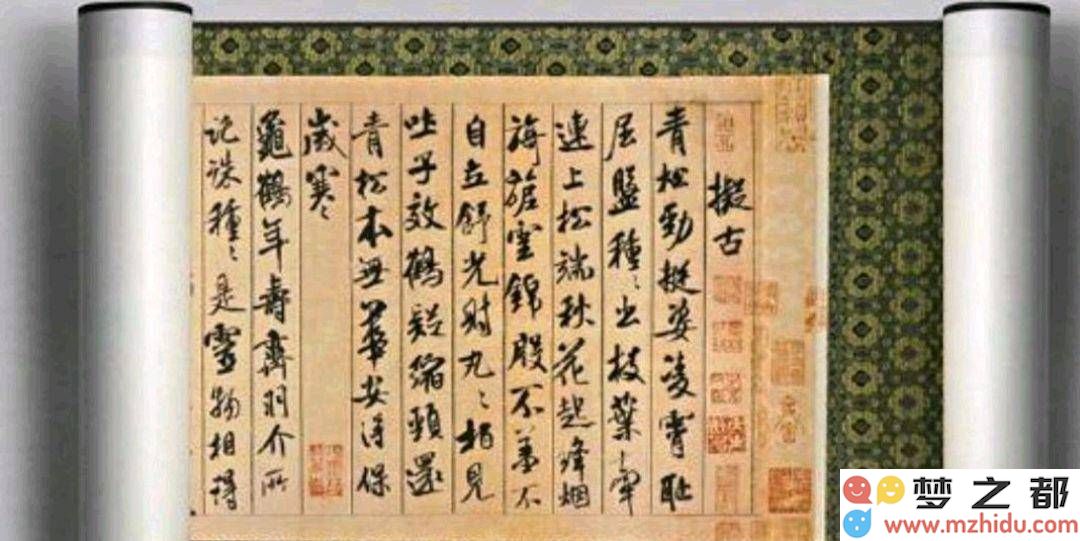 擬古
青松勁挺姿凌霄恥
屈盤種〻出枝葉牽
連上松端秋花起絳烟
旖旎雲錦殷不羞不
自立舒光射丸〻柏見
吐子效鶴疑縮頸還
青松本無華安得保
歲寒
龜鶴年壽齊羽介所
託殊種〻是靈物相得
梦之都
www.mzhidu.com